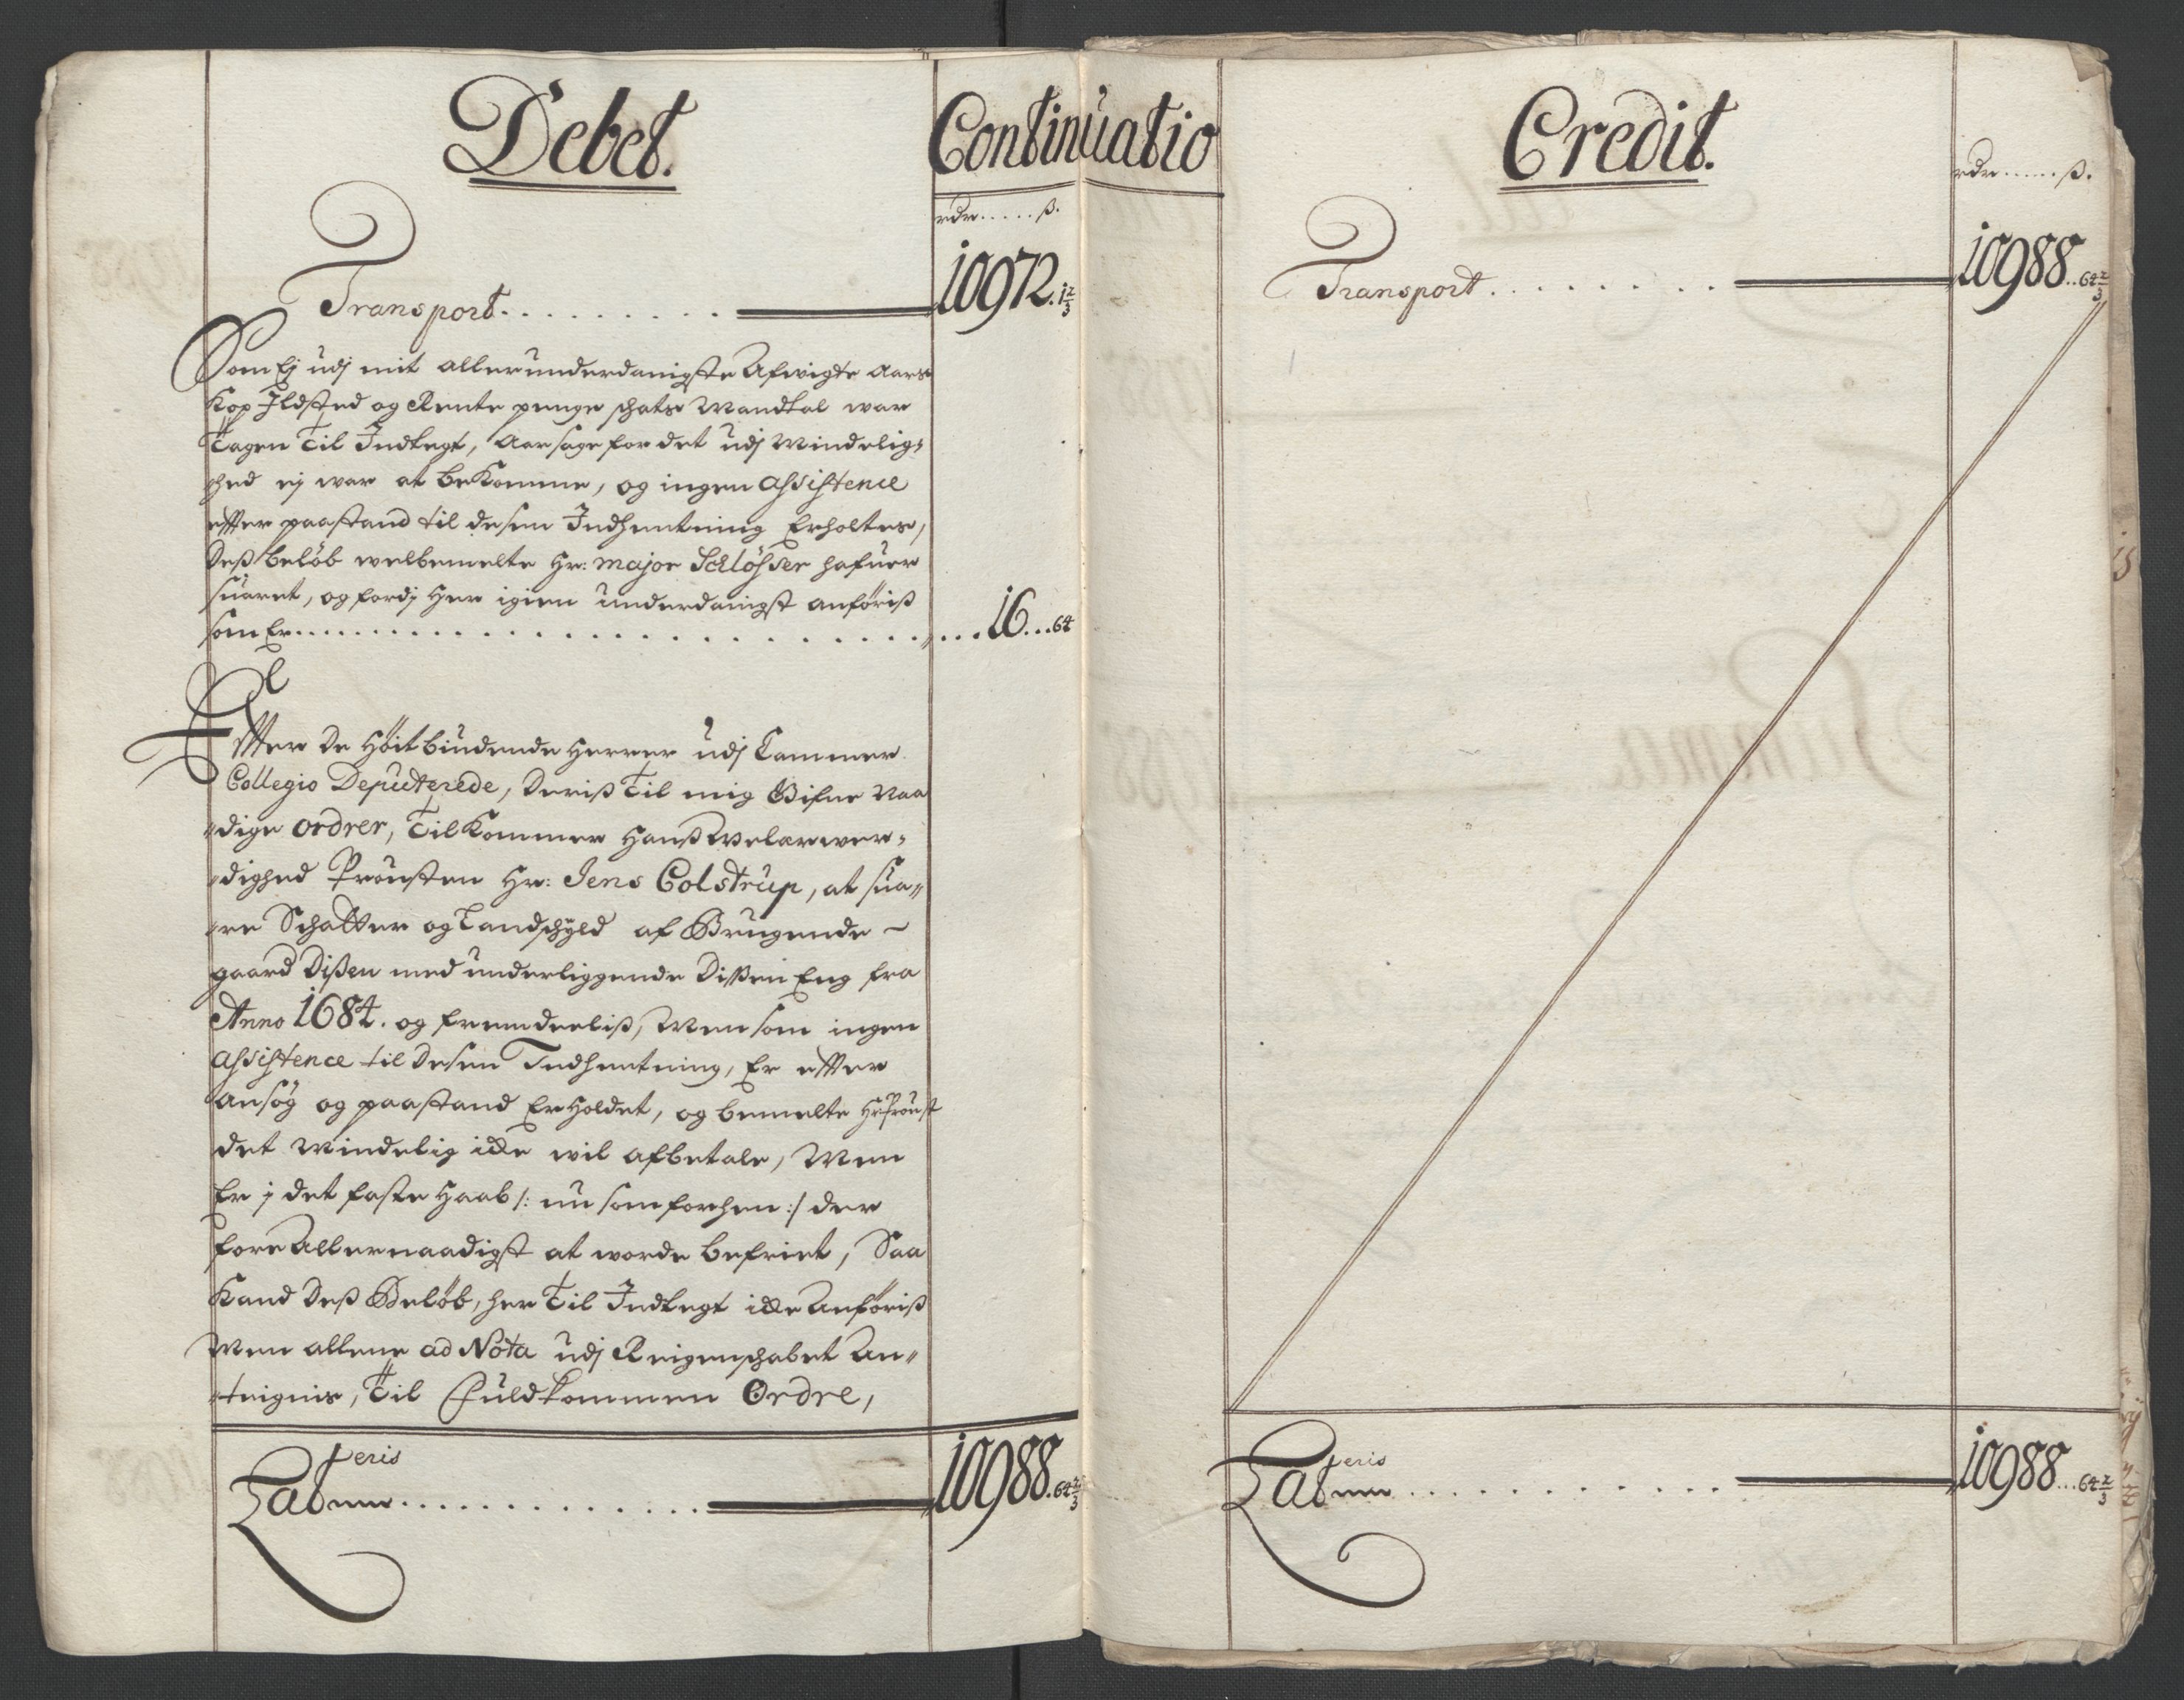 Debet.
Continuatio
rdr.....ß.
Transport. . . . . . . . . 10972. 1 2/3
Som Ej udj mit allerunderdanigste Afvigte Aars
Kop Ildsted og Rente penge schats Mandtal war
Tagen Til Indtegt, Aarsage for det udj Mindelig=
hed ej war at bekomme, og ingen assistence
effter paastand til desen Indhentning Erholtes,
Deß beløb welbemelte Hr: Major Schlösser hafuer
suaret, og fordj Her igien underdanigst anføriß
som Er. . . . . . . . . . . . . . 16...64
Effter De Høit biudende Herrer udj Cammer
Collegio Deputerede, Deriß Til mig Gifne Naa
=dige ordrer, Til Kommer Hanß Welærwer=
=dighed Prousten Hr: Jens Colstrup, at sua=
=re Schatter og Landschyld af Brugende
gaard Dißen med underliggende Dißen Eng fra
Anno 1684. og fremdeeliß, Men som ingen
assistence til Desen Indhentning, Er effter
ansøg og paastand ErHoldet, og bemelte Hr: Proust
det Mindelig icke wil afbetale, Men
Er j det faste Haab /: nu som forhen :/ der
fore Allernaadigst at worde befriet, Saa
Kand Deß Beløb, her Til Indtegt icke Anføriß
Men allene ad Nota udj Reigenschabet An=
=teignis, Til Fuldkommen Ordre,
Lateris
Latum . . . . . . . . . 10988. 64 2/3
Credit.
rdr.....ß.
Transport. . . . . . . . 10988.. 64 2/3
Lateris
Latum . . . . . . . . . 10988... 64 2/3